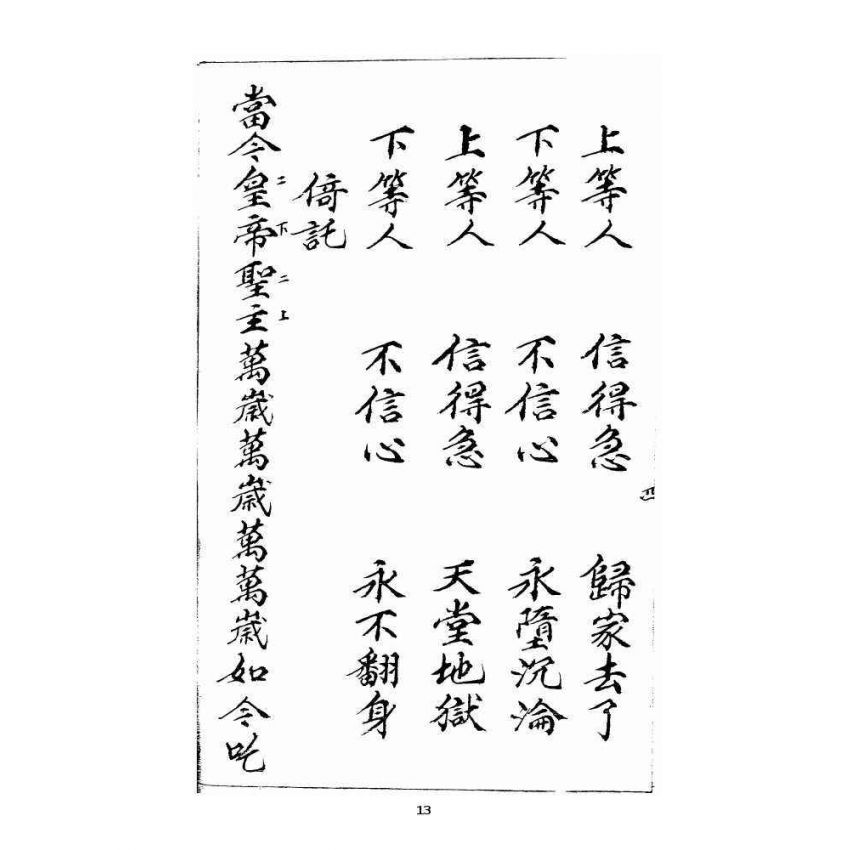 上等人 信得急 歸家去了
下等人 不信心 永墮沉淪
上等人 信得急 天堂地獄
下等人 不信心 永不翻身
倚託
當今皇帝聖主萬歲萬歲萬萬歲如今吃
二下二上
四
13